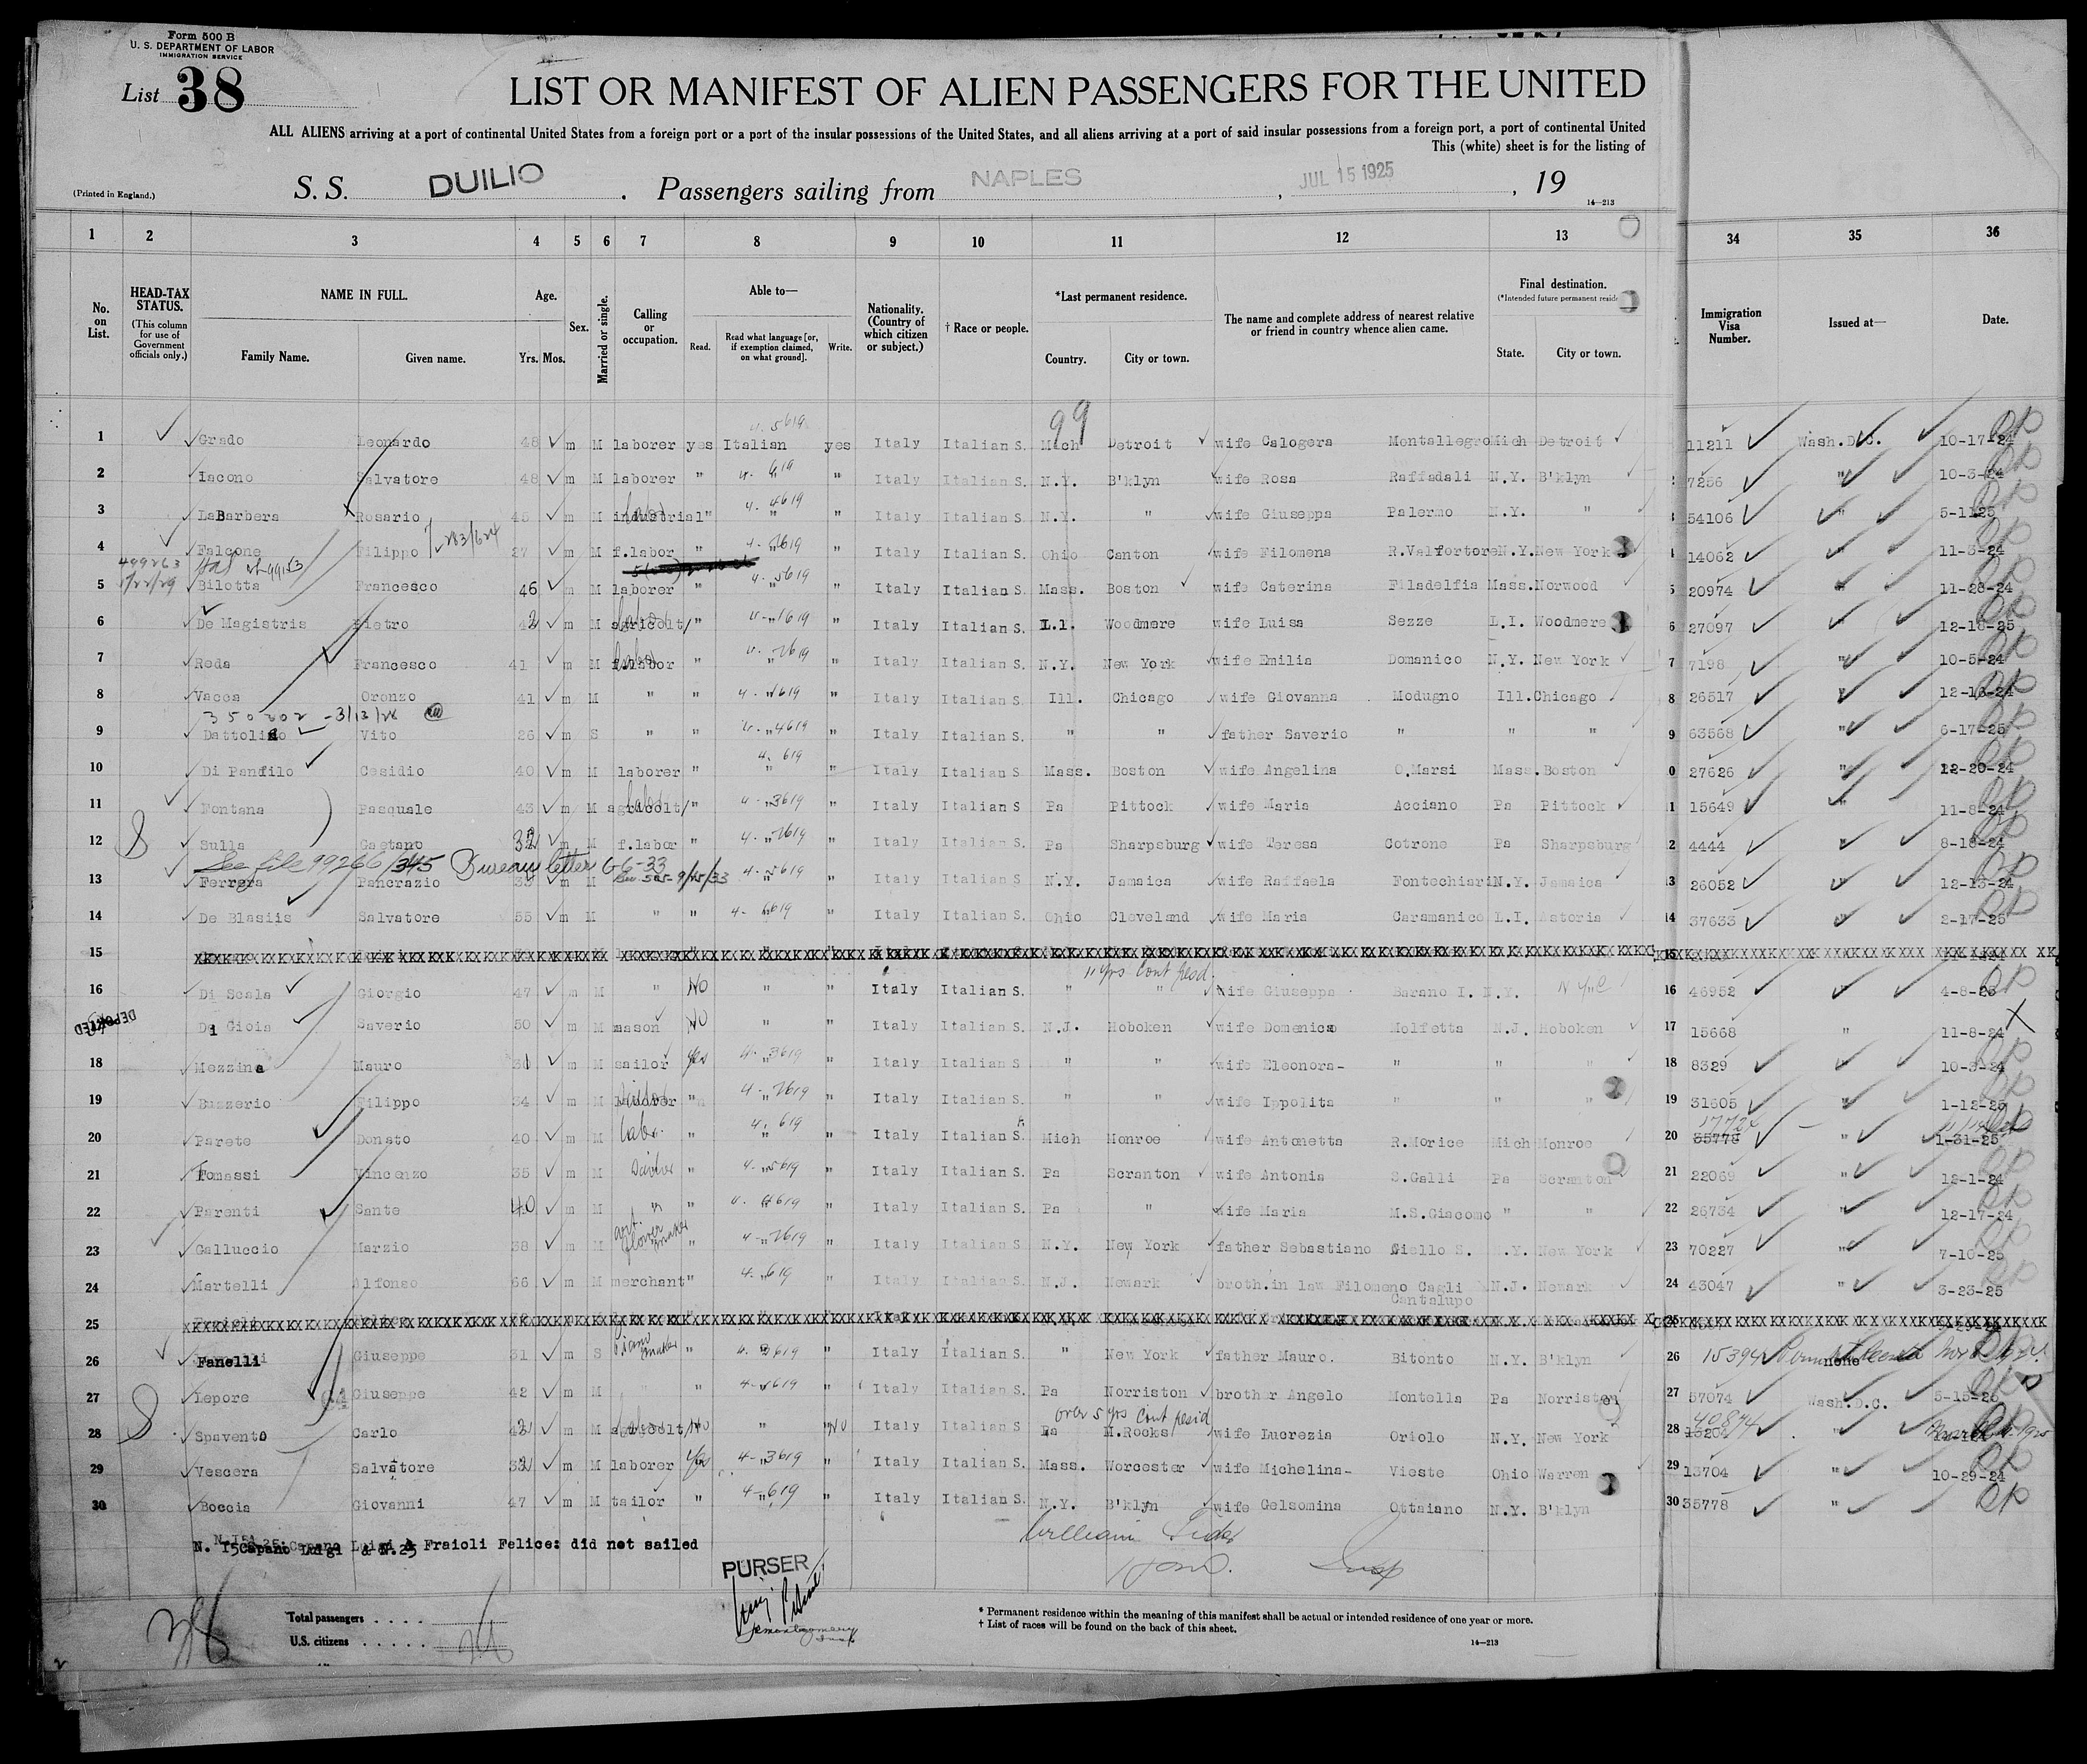 Form 500 B
U. S. DEPARTMENT OF LABOR
IMMIGRATION SERVICE
List 38
LIST OR MANIFEST OF ALIEN PASSENGERS FOR THE UNITED
ALL ALIENS arriving at a port of continental United States from a foreign port or a port of the insular possessions of the United States, and all aliens arriving at a port of said insular possessions from a foreign port, a port of continental United
This (white) sheet is for the listing of
(Printed in England.) S. S. DUILIO . Passengers sailing from NAPLES , JUL 15 1925 , 19
14—213
1 2 3 4 5 6 7 8 9 10 11 12 13 34 35 36
No. on List. HEAD-TAX STATUS. (This column for use of Government officials only.) NAME IN FULL. Family Name. Given name. Age. Yrs. Mos. Sex. Married or single. Calling or occupation. Able to— Read. Read what language [or, if exemption claimed, on what ground]. Write. Nationality. (Country of which citizen or subject.) † Race or people. *Last permanent residence. Country. City or town. The name and complete address of nearest relative or friend in country whence alien came. Final destination. (*Intended future permanent State. City or town. Immigration Visa Number. Issued at— Date.
99
1 Grado Leonardo 48 m M laborer yes Italian yes Italy Italian S. Mich Detroit wife Calogera Montallegro Mich Detroit 11211 Wash.D.C. 10-17-24
2 Iacono Salvatore 48 m M laborer " " Italy Italian S. N.Y. B'klyn wife Rosa Raffadali N.Y. B'klyn 7256 " 10-3-24
3 LaBarbera Rosario 45 m M industrial " " " Italy Italian S. N.Y. " wife Giuseppa Palermo N.Y. " 54106 " 5-1125
4 Falcone Filippo 27 m M f.labor " " " Italy Italian S. Ohio Canton wife Filomena R.Valfortore N.Y. New York 14062 " 11-3-24
5 Bilotta Francesco 46 m M laborer " " " Italy Italian S. Mass. Boston wife Caterina Filadelfia Mass. Norwood 20974 " 11-28-24
6 De Magistris Pietro 42 m M agricolt/ " " " Italy Italian S. L.I. Woodmere wife Luisa Sezze L.I. Woodmere 27097 " 12-18-25
7 Reda Francesco 41 m M f.labor " " " Italy Italian S. N.Y. New York wife Emilia Domanico N.Y. New York 7198 " 10-5-24
8 Vacca Oronzo 41 m M " " " " Italy Italian S. Ill. Chicago wife Giovanna Modugno Ill. Chicago 26517 " 12-16-24
350302 - 3/13/28
9 Dattolino Vito 26 m S " " " " Italy Italian S. " " father Saverio " " " 63568 " 6-17-25
10 Di Panfilo Cesidio 40 m M laborer " " " Italy Italian S. Mass. Boston wife Angelina O.Marsi Mass. Boston 27626 " 12-20-24
11 Fontana Pasquale 43 m M agricolt/ " " " Italy Italian S. Pa Pittock wife Maria Acciano Pa Pittock 15649 " 11-8-24
12 Sulla Gaetano 32 m M f.labor " " " Italy Italian S. Pa Sharpsburg wife Teresa Cotrone Pa Sharpsburg 4444 " 8-18-24
See file 99266/345 Bureau letter 6-6-33
13 Ferrera Pancrazio 33 m M " " Italy Italian S. N.Y. Jamaica wife Raffaela Fontechiari N.Y. Jamaica 26052 " 12-13-24
14 De Blasiis Salvatore 55 m M " " " " Italy Italian S. Ohio Cleveland wife Maria Caramanico L.I. Astoria 37633 " 2-17-25
15
11 yrs Cont Resd.
16 Di Scala Giorgio 47 m M " No " " Italy Italian S. " " wife Giuseppa Barano I. N.Y. 46952 " 4-8-25
DEPORTED Di Gioia Saverio 50 m M mason No " " Italy Italian S. N.J. Hoboken wife Domenica Molfetta N.J. Hoboken 17 15668 " 11-8-24
18 Mezzina Mauro 31 m M sailor Yes " " Italy Italian S. " " wife Eleonora- " " " 8329 " 10-3-24
19 Buzzerio Filippo 34 m M laborer " " " Italy Italian S. " " wife Ippolita " " " 31605 " 1-12-25
20 Parete Donato 40 m M Lab. " " " Italy Italian S. Mich Monroe wife Antonetta R.Morice Mich Monroe 35778 " 1-31-25
21 Tomassi Vincenzo 35 m M " " " Italy Italian S. Pa Scranton wife Antonia S.Galli Pa Scranton 22069 " 12-1-24
22 Parenti Sante 40 m M " " " " Italy Italian S. Pa " wife Maria M.S.Giacomo " " 26734 " 12-17-24
23 Galluccio Marzio 38 m M art. flower maker " " " Italy Italian S. N.Y. New York father Sebastiano Aiello S. N.Y. New York 70227 " 7-10-25
24 Martelli Alfonso 66 m M merchant " " Italy Italian S. N.J. Newark broth.in law Filomeno Cagli Cantalupo N.J. Newark 43047 " 3-23-25
25
26 Fanelli Giuseppe 31 m S Piano maker " " " Italy Italian S. " New York father Mauro. Bitonto N.Y. B'klyn 15394
27 Lepore Giuseppe 42 m M " " " " Italy Italian S. Pa Norriston brother Angelo Montella Pa Norriston 57074 Wash.D.C. 5-15-25
over 5 yrs Cont Resid
28 Spavento Carlo 42 m M agricolt/ No " No Italy Italian S Pa M.Rocks wife Lucrezia Oriolo N.Y. New York 40874 "
29 Vescera Salvatore 32 m M laborer Yes " " Italy Italian S. Mass. Worcester wife Michelina- Vieste Ohio Warren 13704 " 10-29-24
30 Boccia Giovanni 47 m M tailor " " " Italy Italian S. N.Y. B'klyn wife Gelsomina Ottaiano N.Y. B'klyn 35778 "
N. 15 Capano Luigi & N.25 Fraioli Felice: did not sailed
PURSER
Total passengers . . . .
U.S. citizens . . . . .
* Permanent residence within the meaning of this manifest shall be actual or intended residence of one year or more.
† List of races will be found on the back of this sheet.
14—213